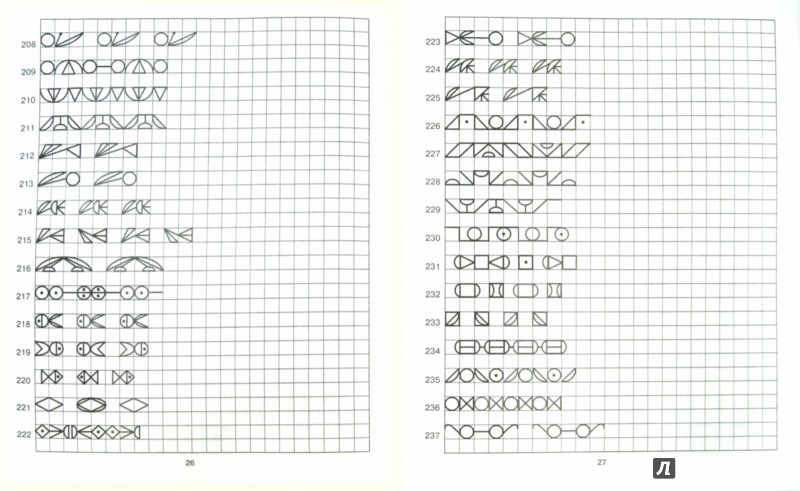 208
209
210
211
212
213
214
215
216
217
218
219
220
221
222
26
223
224
225
226
227
228
229
230
231
232
233
234
235
236
237
27
Л